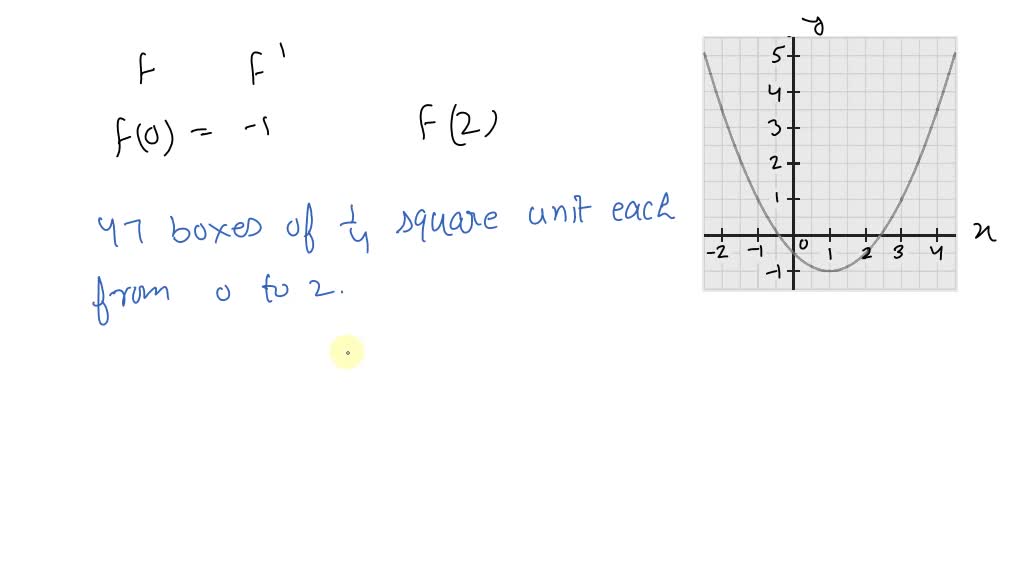 F F'
F(0) = -1 F(2)
47 boxes of 1/4 square unit each
from 0 to 2.
y
5
4
3
2
1
-2 -1 0 1 2 3 4 x
-1